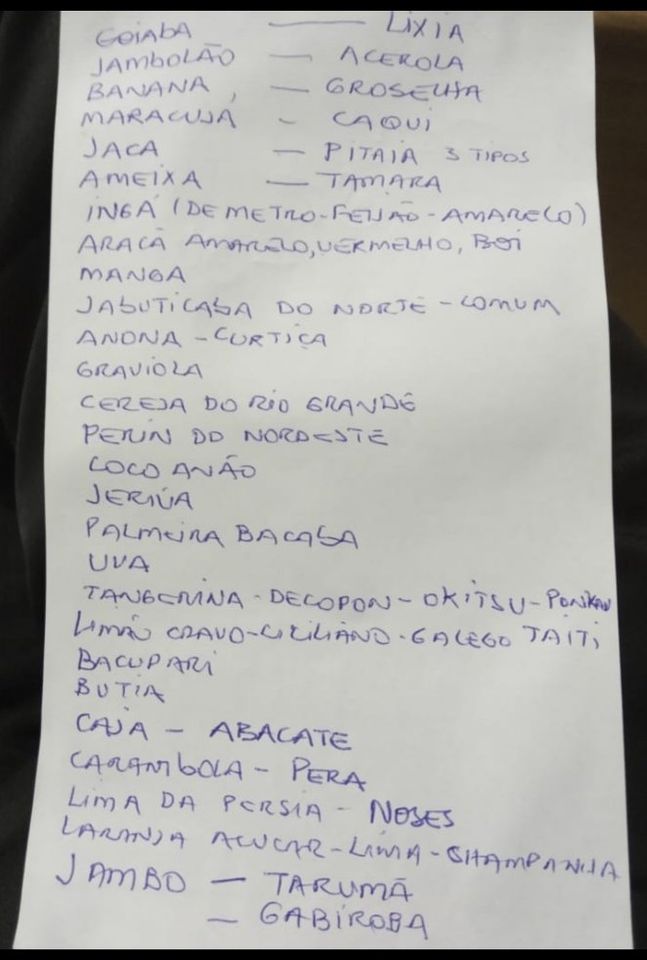 GOIABA — LIXIA
JAMBOLÃO — ACEROLA
BANANA, — GROSELHA
MARACUJA - CAQUI
JACA — PITAIA 3 TIPOS
AMEIXA — TAMARA
INGÁ (DE METRO-FEIJÃO-AMARELO)
ARAÇA AMARELO, VERMELHO, BOI
MANGA
JABUTICABA DO NORTE - COMUM
ANONA - CURTIÇA
GRAVIOLA
CEREJA DO RIO GRANDE
DO NORDESTE
COCO ANÃO
JERIVA
PALMEIRA BACABA
UVA
TANGERINA - DECOPON - OKITSU - PONKAN
LIMÃO CRAVO - CICILIANO - GALEGO TAITI
BACUPARI
BUTIA
CAJA - ABACATE
CARAMBOLA - PERA
LIMA DA PERSIA - NOSES
LARANJA AÇUCAR - LIMA - CHAMPANHA
JAMBO — TARUMÃ
— GABIROBA